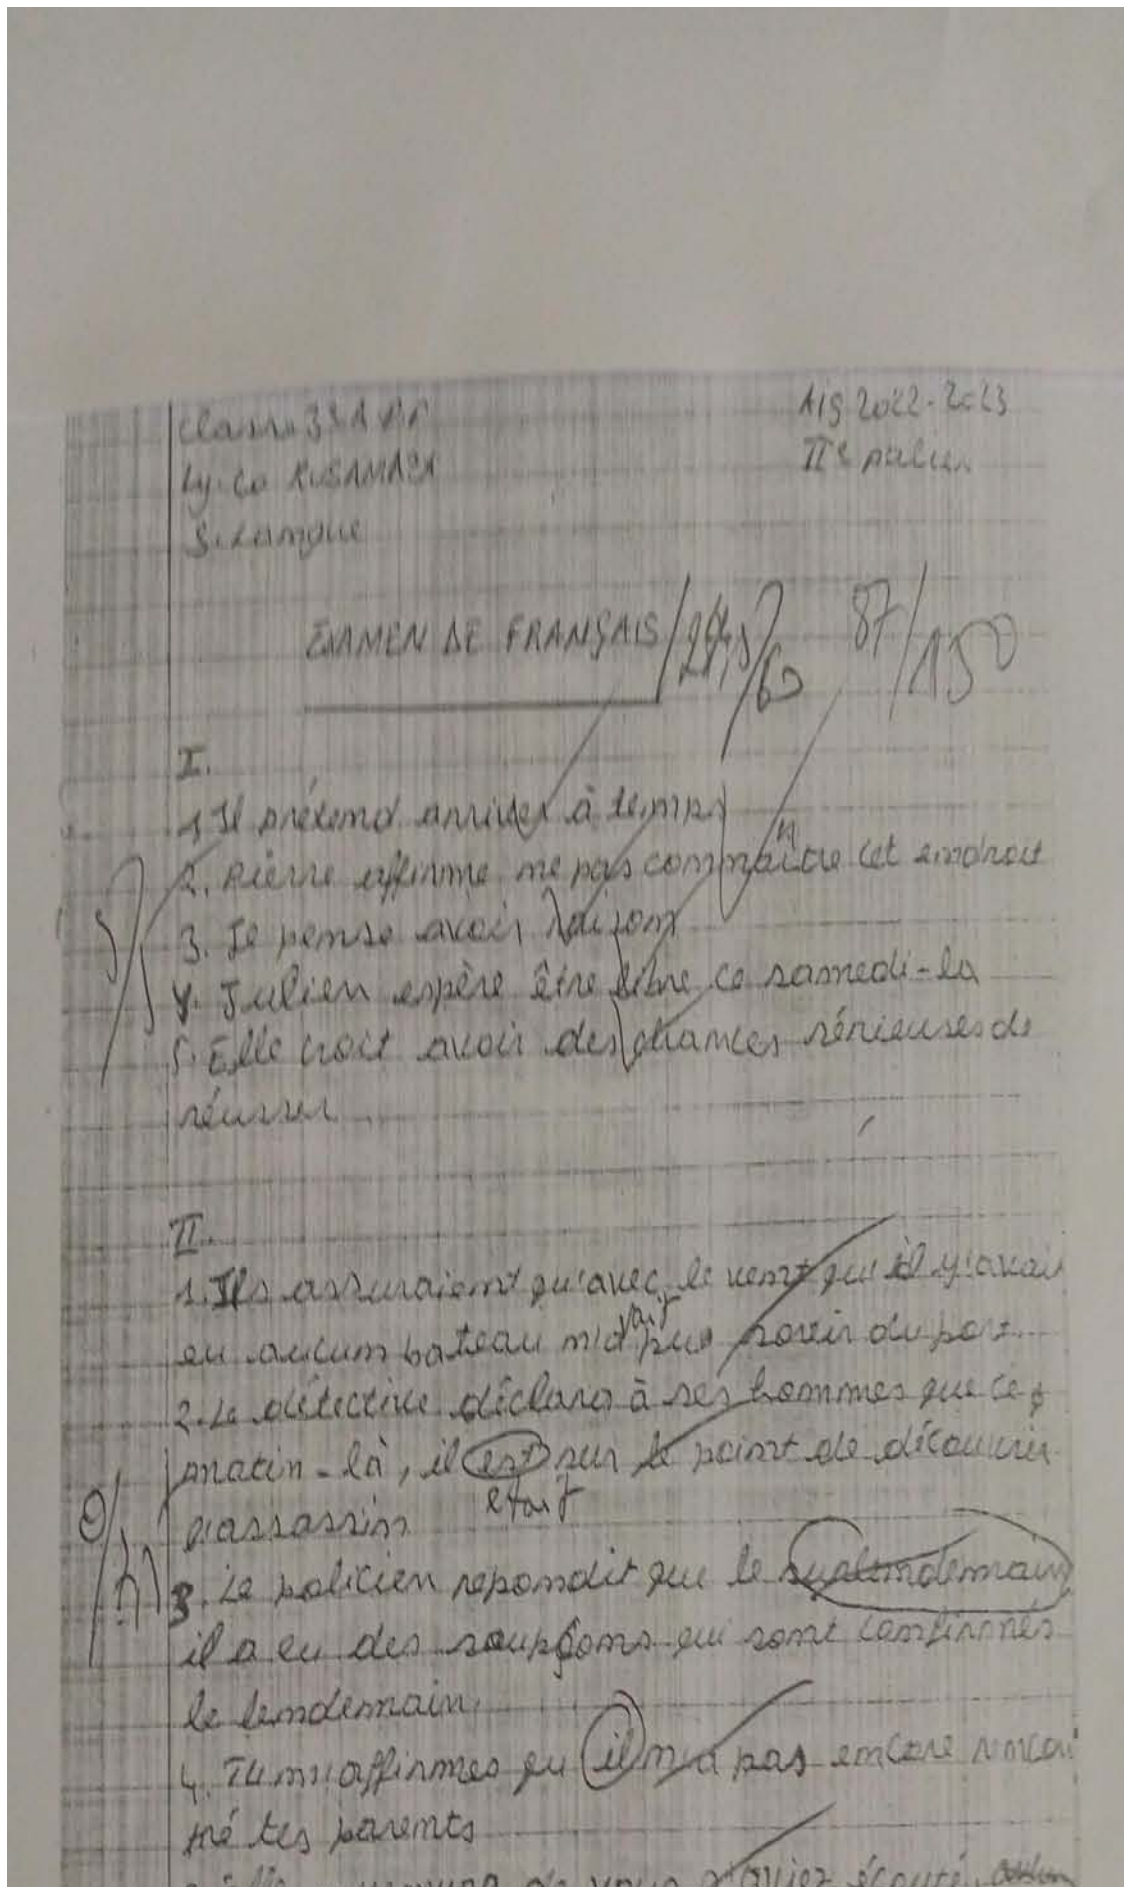 Classe 3
A/S 2022-2023
Ly. Co RUSAMAZA
IIe palier
S. Langue
EXAMEN DE FRANÇAIS / 29,5/60 87/150
I.
1. Il prétend arriver à temps
2. Pierre affirme ne pas connaître cet endroit
3. Je pense avoir raison
4. Julien espère être libre ce samedi-la
5. Elle croit avoir des chances sérieuses de
réussir
II.
1. Ils assuraient qu'avec le vent qu'il y'avait
eu aucum bateau n'a vait pus sorir du port.
2. Le détective déclara à ses hommes que ce
matin-là, il est sur le point de découvrir
etait
l'assassin
3. Le policien repondit que le surlendemain
il a eu des soupçons qui sont confirmés
le lendemain.
4. Tu m'affirmes qu il n'a pas encore rencon
tré tes parents
de vous écouté